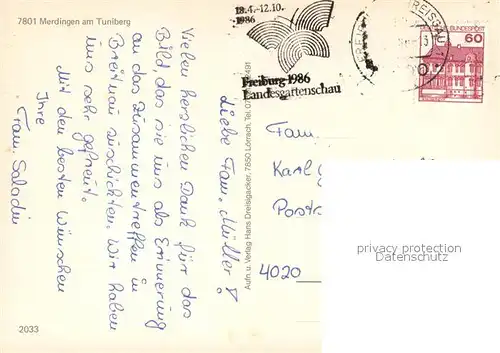 7801 Merdingen am Tuniberg
18.4.-12.10.
1986
Freiburg 1986
Landesgartenschau
DEUTSCHE BUNDESPOST
60
Liebe Fam. Müller!
Vielen herzlichen Dank für das
Bild das sie uns als Erinnerung
an das Zusammentreffen in
Breitnau zuschickten. Wir haben
uns sehr gefreut.
Mit den besten Wünschen
Ihre
Fam. Saladin
Aufn u. Verlag Hans Dreisgacker, 7850 Lörrach, Tel.
Fam.
Karl
Postr
4020
privacy protection
Datenschutz
2033